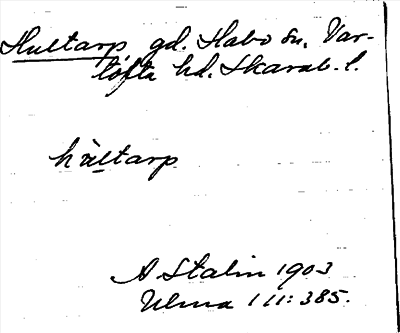 Hultarp gd. Habo sn. Var-
tofta hd. Skarab. l.
hùltarp
A Stalin 1903
Ulma 111:385.